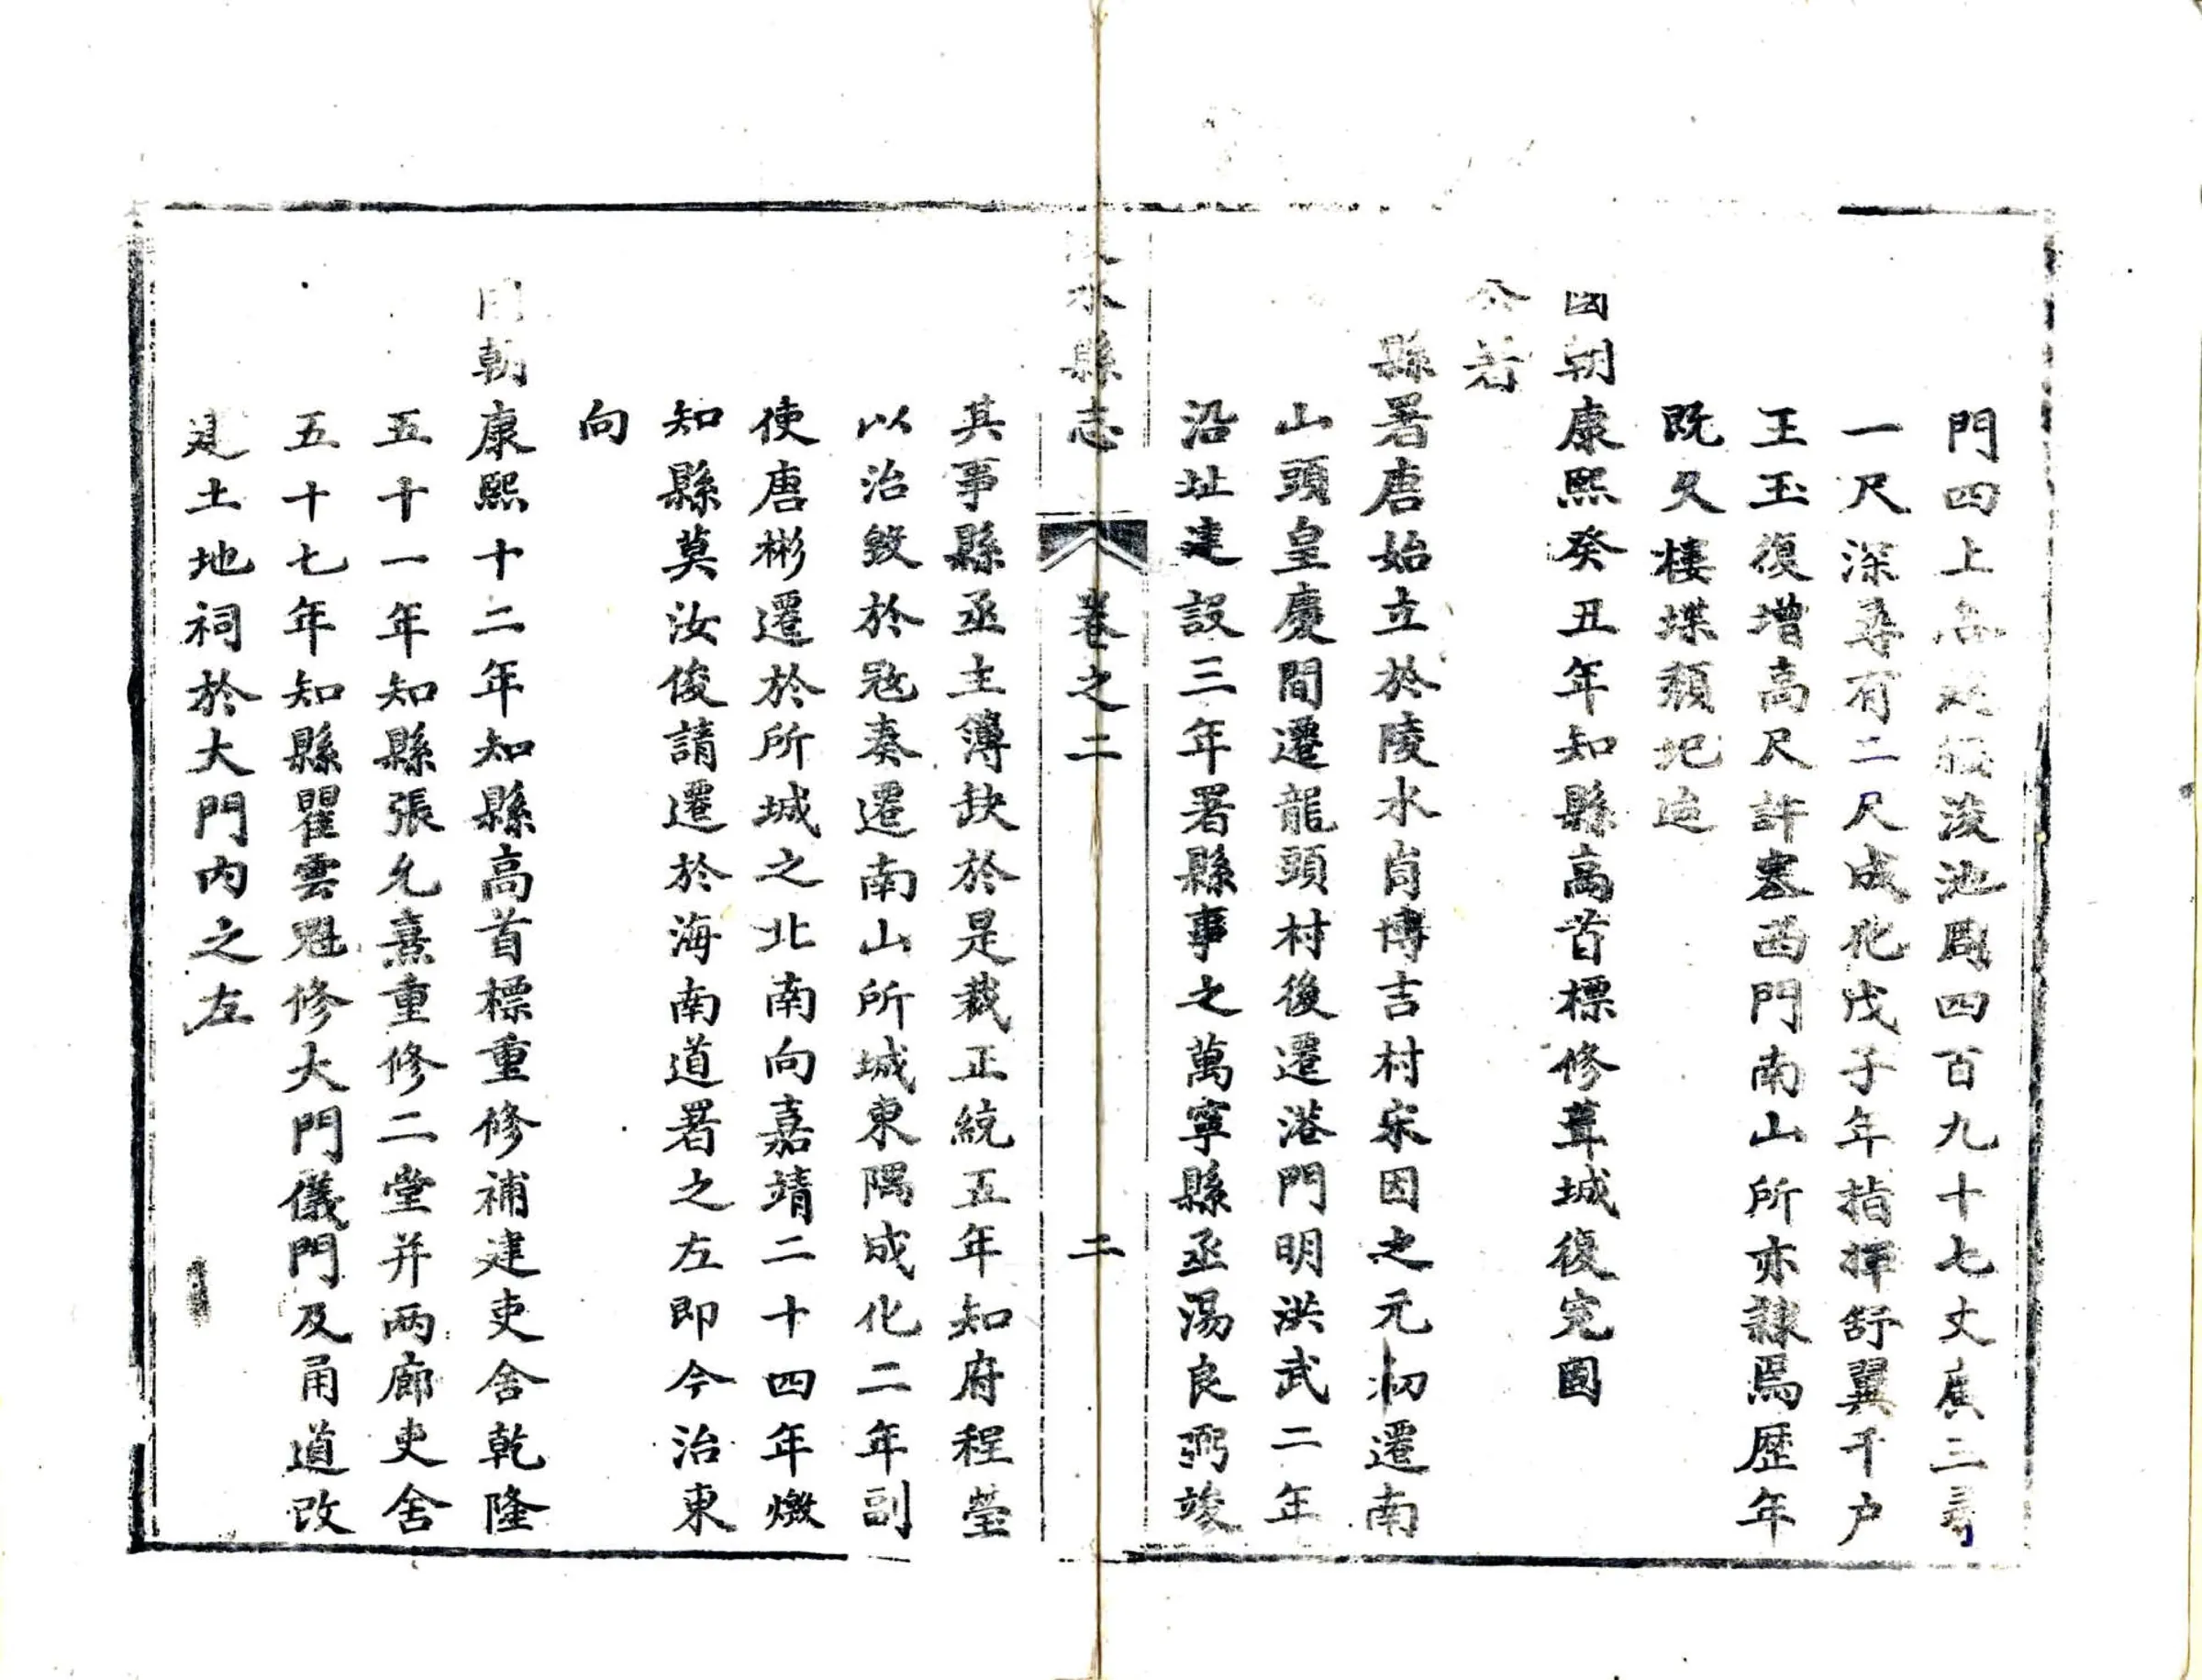 門四上各建樓浚池周四百九十七丈廣三尋
一尺深尋有二尺成化戊子年指揮舒翼千户
王玉復增高尺許塞西門南山所亦隷焉歴年
既久樓堞頽圮迨
國朝康熙癸丑年知縣高首標修葺城復完固
公署
縣署唐始立於陵水肖博吉村宋因之元初遷南
山頭皇慶間遷龍頭村後遷港門明洪武二年
沿址建設三年署縣事之萬寧縣丞湯良弼竣
陵水縣志 卷之二 二
其事縣丞主簿缺於是裁正統五年知府程瑩
以治毀於冦奏遷南山所城東隅成化二年副
使唐彬遷於所城之北南向嘉靖二十四年燬
知縣莫汝俊請遷於海南道署之左即今治東
向
國朝康熙十二年知縣高首標重修補建吏舍乾隆
五十一年知縣張允熹重修二堂并两廊吏舍
五十七年知縣瞿雲魁修大門儀門及甬道改
建土地祠於大門内之左